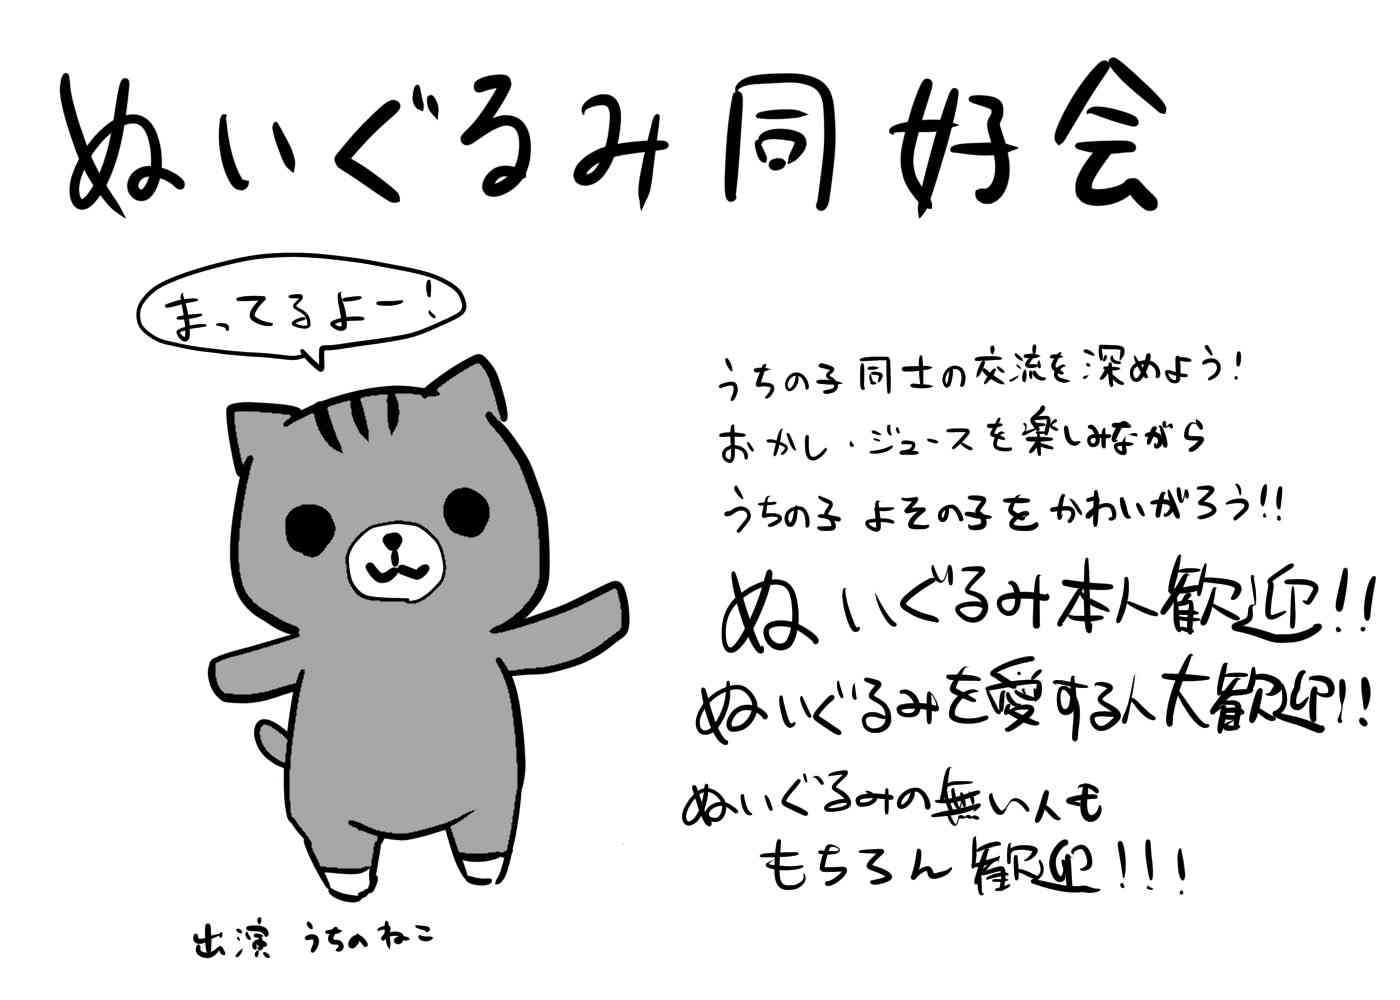 ぬいぐるみ同好会
まってるよー！
うちの子同士の交流を深めよう！
おかし・ジュースを楽しみながら
うちの子 よその子をかわいがろう！！
ぬいぐるみ本人歓迎！！
ぬいぐるみを愛する人大歓迎！！
ぬいぐるみの無い人も
もちろん歓迎！！！
出演 うちのねこ